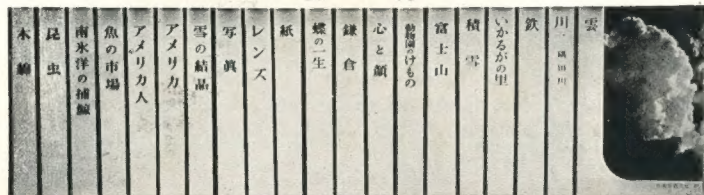 雲
川 隅田川
鉄
いかるがの里
積雪
富士山
動物園のけもの
心と顔
鎌倉
蝶の一生
紙
レンズ
写眞
雪の結晶
アメリカ
アメリカ人
魚の市場
南氷洋の捕鯨
昆虫
木綿